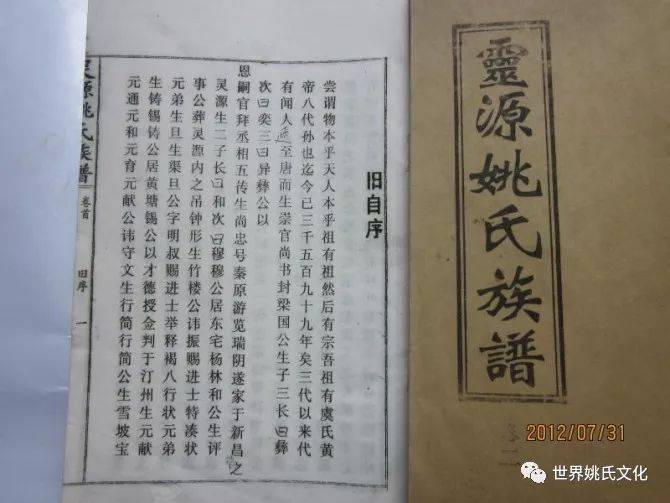 旧自序
尝谓物本乎天人本乎祖有祖然后有宗吾祖有虞氏黄
帝八代孙也迄今已三千五百九十九年矣三代以来代
有闻人至唐而生崇官尚书封梁国公生子三长曰彝
次曰奕三曰异彝公以
恩嗣官拜丞相五传生尚忠号秦原游览瑞阴遂家于新昌之
灵源生二子长曰和次曰穆穆公居东宅杨林和公生评
事公葬灵源内之吊钟形生竹楼公讳振赐进士特凑状
元弟生旦生渠旦公字明叔赐进士举释褐八行状元弟
生铸锡铸公居黄塘锡公以才德授佥判于汀州生元献
元通元和元育元献公讳守文生行简行简公生雪坡宝
灵源姚氏族谱
卷首
旧序
一
靈源姚氏族譜
卷二
2012/07/31
世界姚氏文化